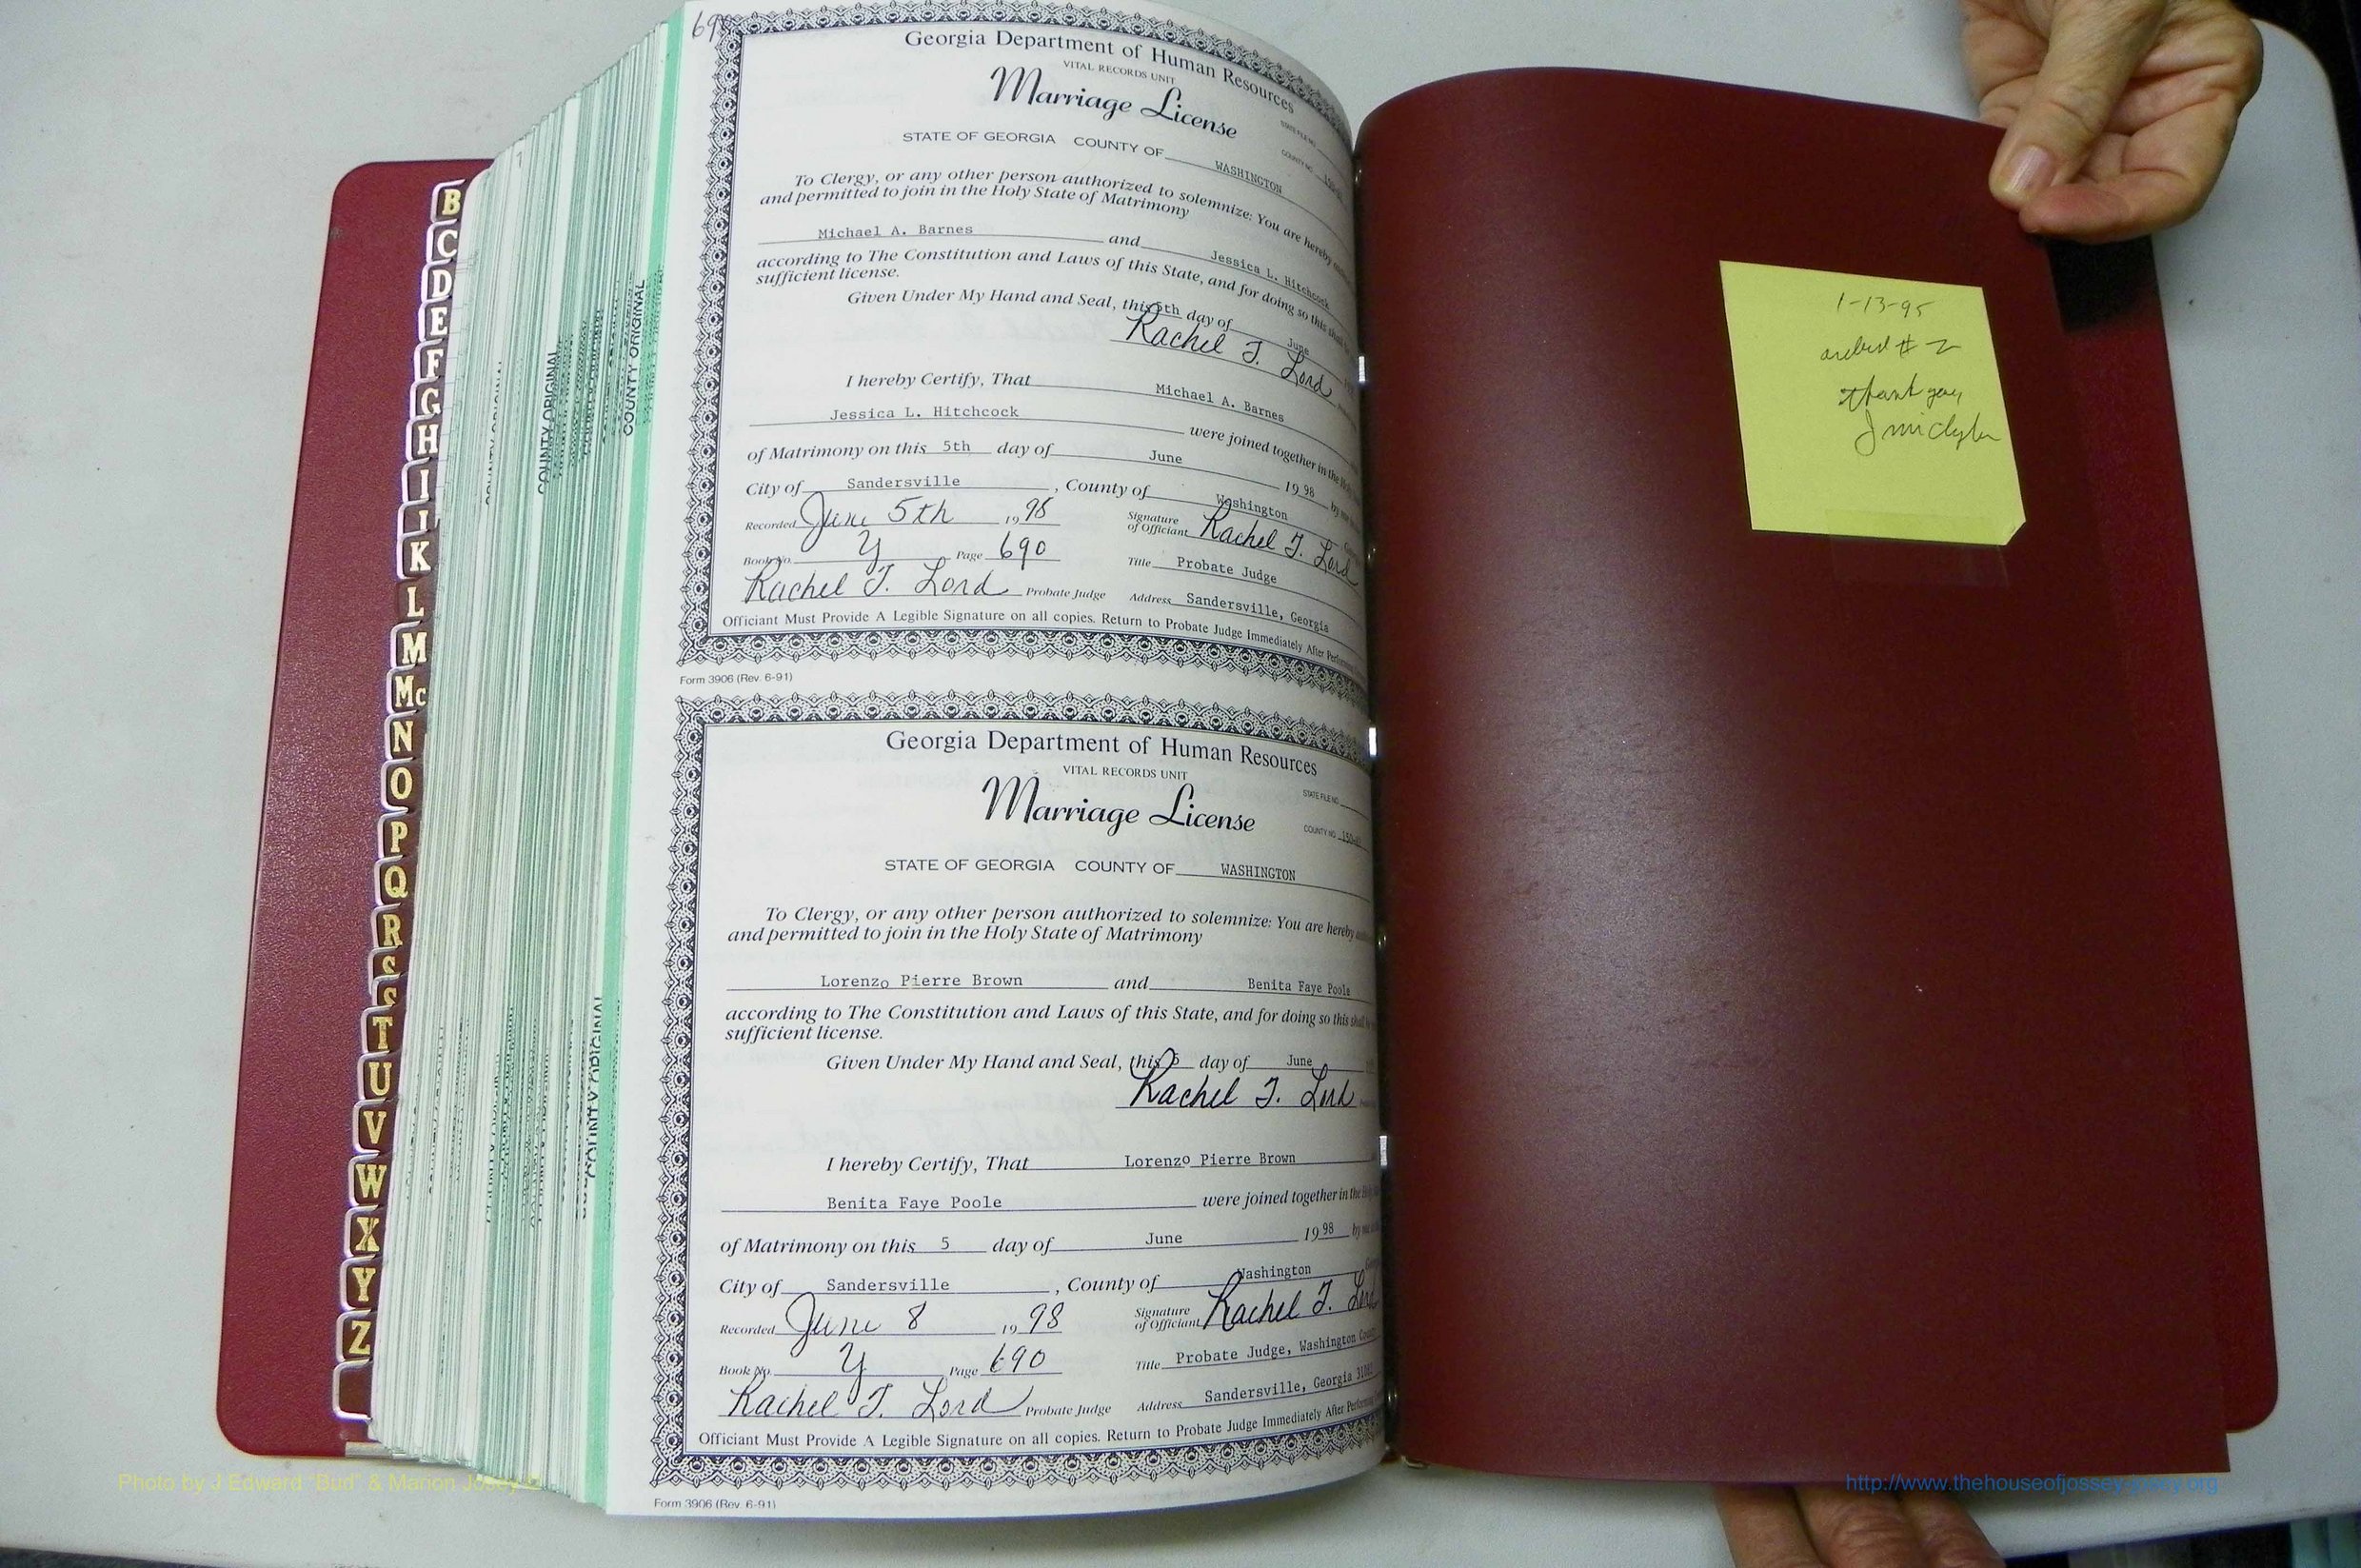 69
Georgia Department of Human Resources
VITAL RECORDS UNIT
Marriage License
STATE FILE NO.
COUNTY NO.
STATE OF GEORGIA COUNTY OF WASHINGTON
To Clergy, or any other person authorized to solemnize: You are hereby
and permitted to join in the Holy State of Matrimony
Michael A. Barnes and Jessica L. Hitchcock
according to The Constitution and Laws of this State, and for doing so this shall
sufficient license.
Given Under My Hand and Seal, this 5th day of June
Rachel T. Lord
I hereby Certify, That Michael A. Barnes
Jessica L. Hitchcock were joined together in the
of Matrimony on this 5th day of June 1998 by me
City of Sandersville, County of Washington
Recorded June 5th 1998 Signature of Officiant Rachel T. Lord
Book No. Y Page 690 Title Probate Judge
Rachel T. Lord Probate Judge Address Sandersville, Georgia
Officiant Must Provide A Legible Signature on all copies. Return to Probate Judge Immediately After
Form 3906 (Rev. 6-91)
Georgia Department of Human Resources
VITAL RECORDS UNIT
Marriage License
STATE FILE NO.
COUNTY NO.
STATE OF GEORGIA COUNTY OF WASHINGTON
To Clergy, or any other person authorized to solemnize: You are hereby
and permitted to join in the Holy State of Matrimony
Lorenzo Pierre Brown and Benita Faye Poole
according to The Constitution and Laws of this State, and for doing so this shall
sufficient license.
Given Under My Hand and Seal, this 5 day of June
Rachel T. Lord
I hereby Certify, That Lorenzo Pierre Brown
Benita Faye Poole were joined together in the
of Matrimony on this 5 day of June 1998 by me
City of Sandersville, County of Washington
Recorded June 8 1998 Signature of Officiant Rachel T. Lord
Book No. Y Page 690 Title Probate Judge, Washington
Rachel T. Lord Probate Judge Address Sandersville, Georgia
Officiant Must Provide A Legible Signature on all copies. Return to Probate Judge Immediately After
Form 3906 (Rev. 6-91)
B
C
D
E
F
G
H
I
J
K
L
M
Mc
N
O
P
Q
R
S
S
T
U
V
W
X
Y
Z
COUNTY ORIGINAL
COUNTY ORIGINAL
COUNTY ORIGINAL
COUNTY ORIGINAL
1-13-95
# 2
thank you,
Photo by J Edward "Bud" & Marion Josey
http://www.thehouseofjossey-josey.org